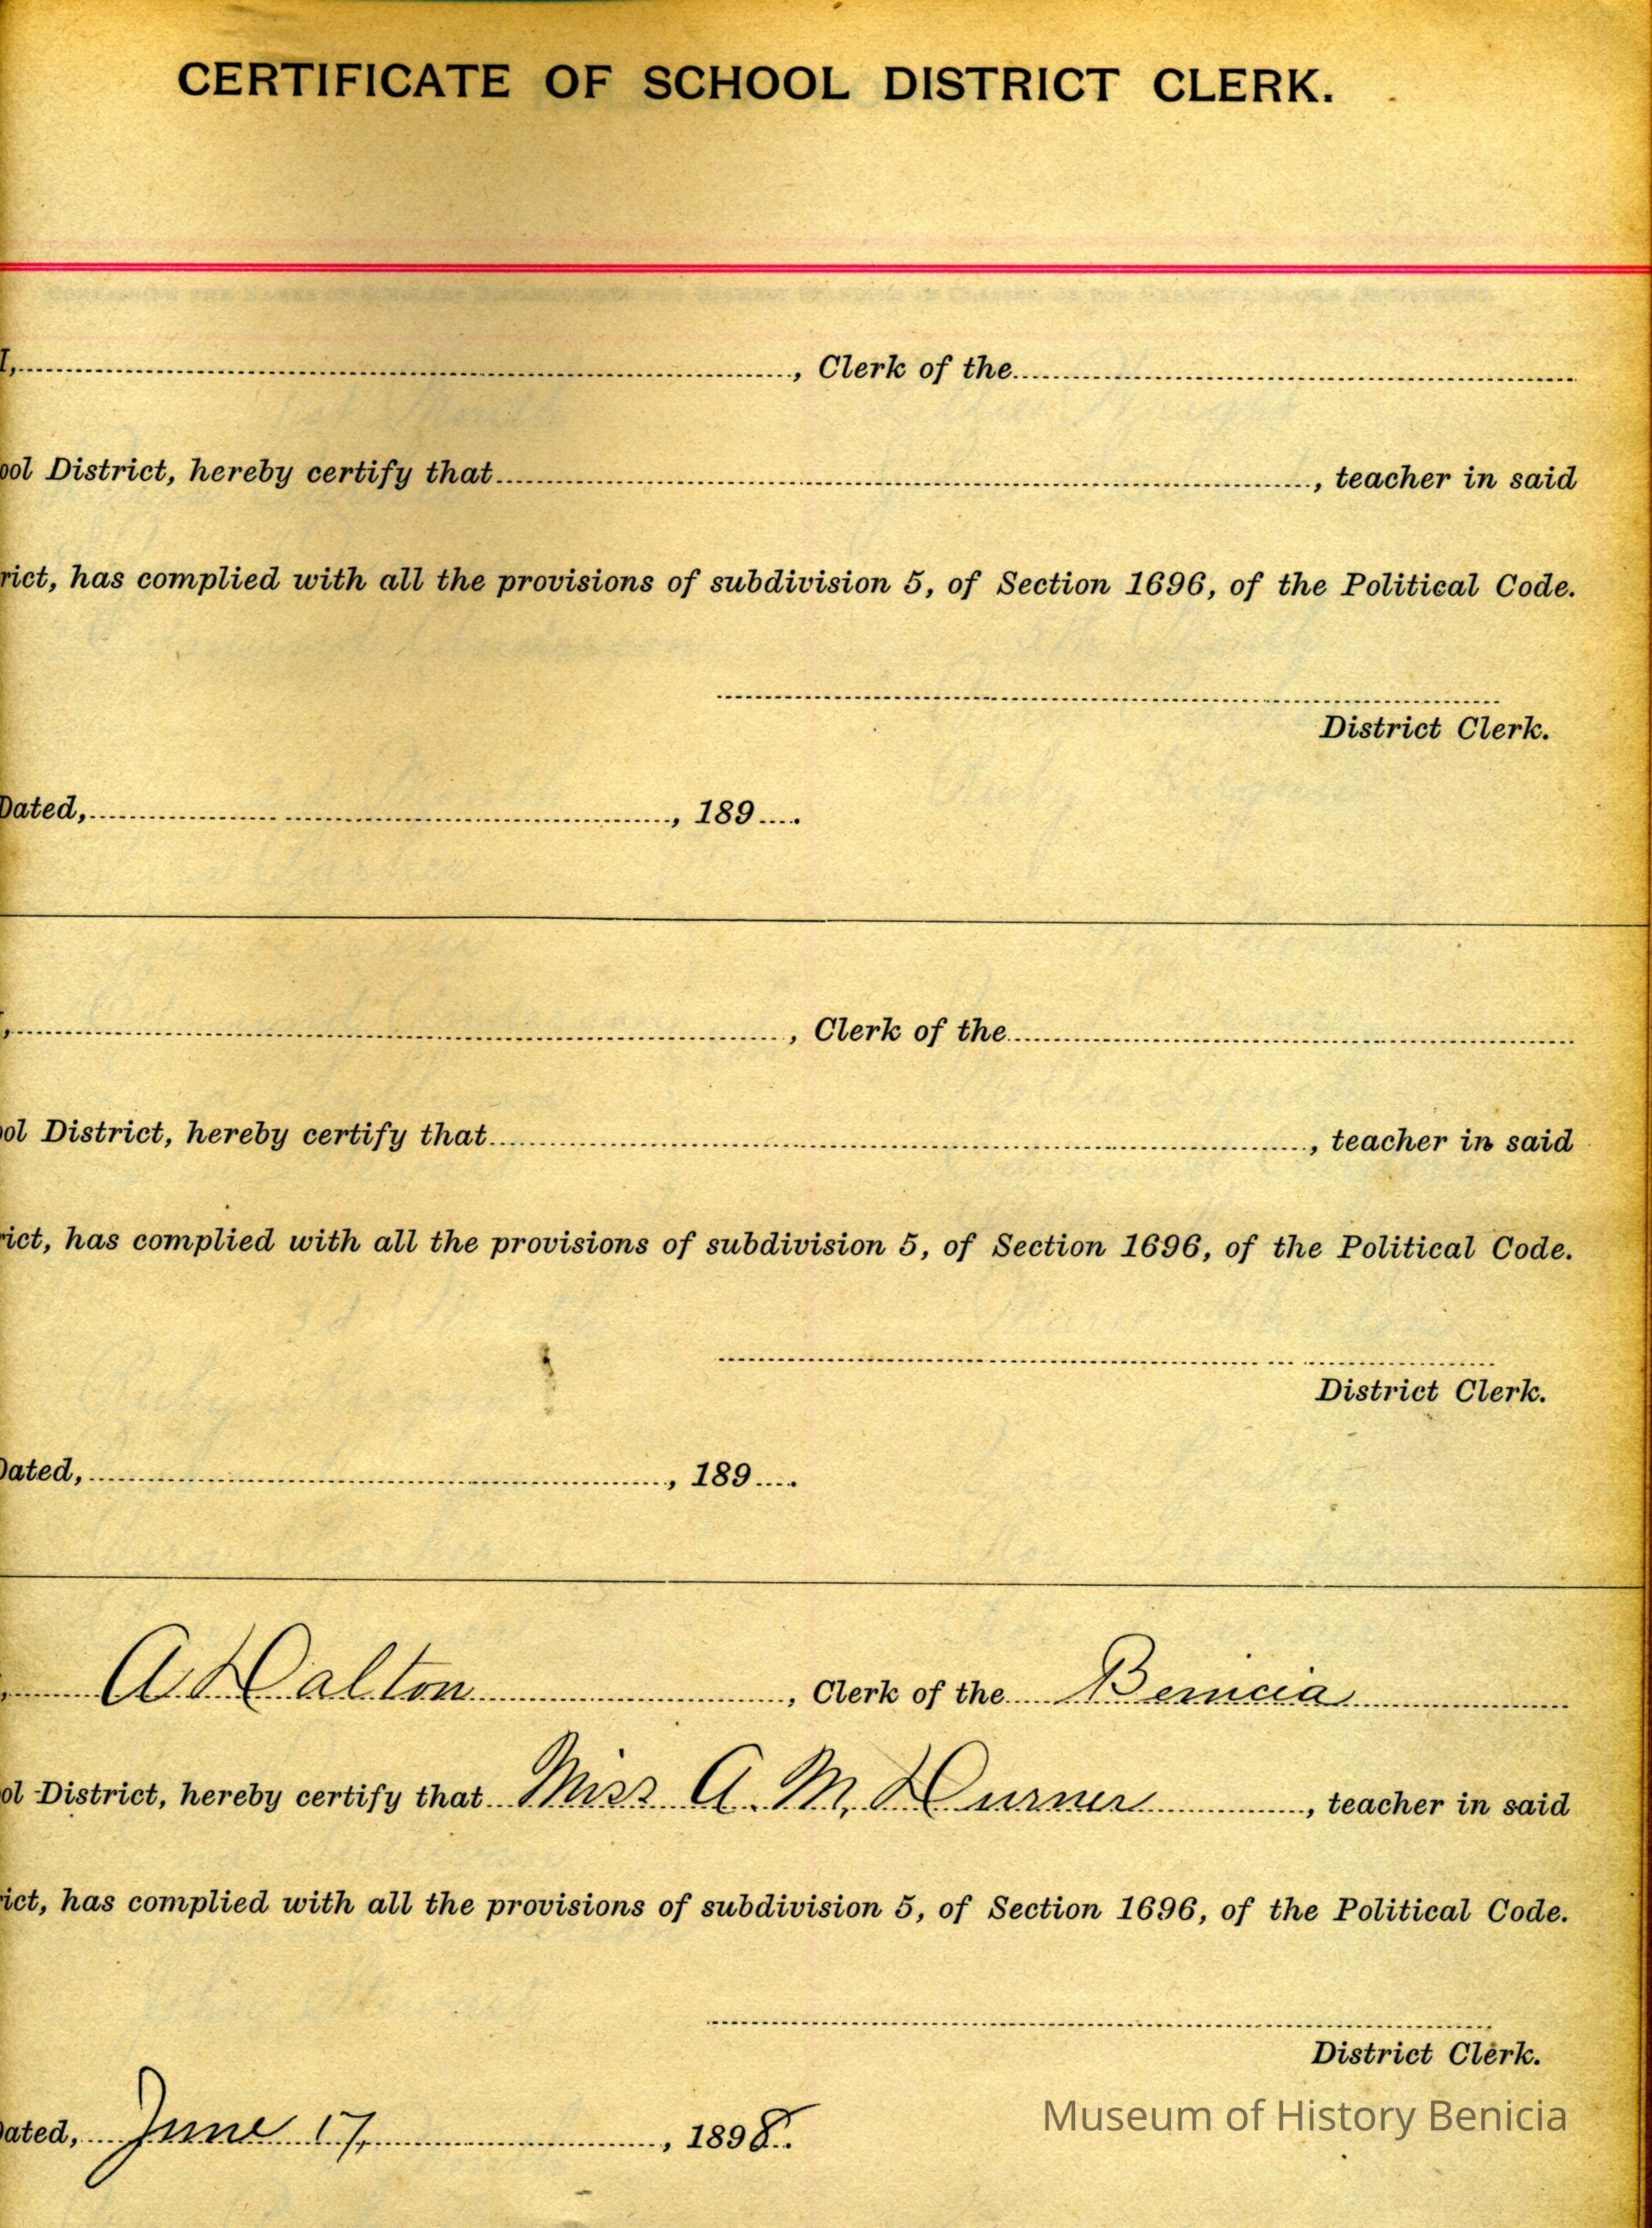 CERTIFICATE OF SCHOOL DISTRICT CLERK.
I, , Clerk of the
ool District, hereby certify that , teacher in said
rict, has complied with all the provisions of subdivision 5, of Section 1696, of the Political Code.
District Clerk.
Dated, , 189 .
, , Clerk of the
ol District, hereby certify that , teacher in said
rict, has complied with all the provisions of subdivision 5, of Section 1696, of the Political Code.
District Clerk.
Dated, , 189 .
, A Dalton , Clerk of the Benicia
ol District, hereby certify that Miss A. M. Durner , teacher in said
ict, has complied with all the provisions of subdivision 5, of Section 1696, of the Political Code.
District Clerk.
ated, June 17, , 1898.
Museum of History Benicia